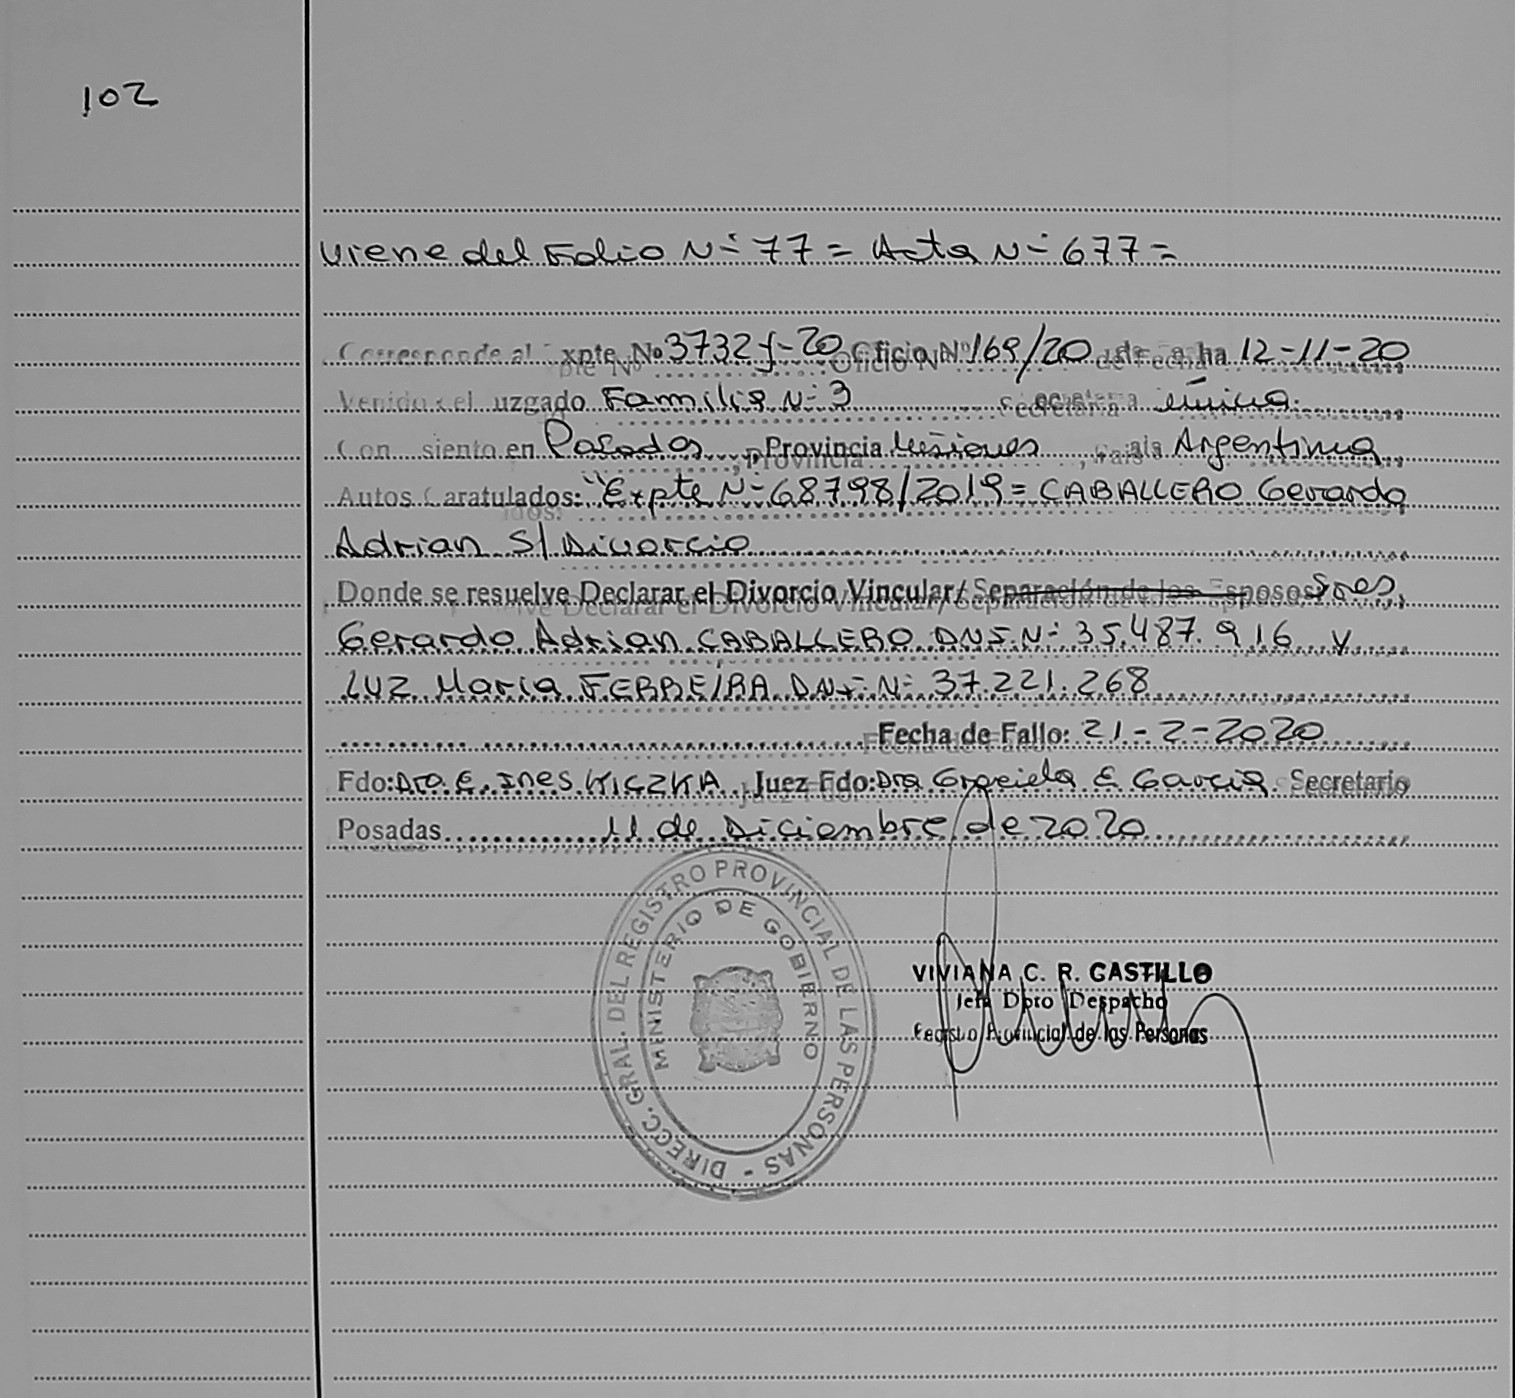 102
Viene del Folio Nº 77 = Acta Nº 677 =
Corresponde al Expte. Nº 3732 f-20 Oficio Nº 169/20 de Fecha 12-11-20
Venido del Juzgado Familia Nº 3 Secretaria única.
Con asiento en Posadas, Provincia Misiones, País Argentina,
Autos Caratulados: "Expte Nº 68798/2019 = CABALLERO Gerardo
Adrian S/ Divorcio
Donde se resuelve Declarar el Divorcio Vincular/ Separación de los Esposos Sres,
Gerardo Adrian CABALLERO DNI. Nº 35.487.916 y
Luz Maria FERREIRA DNI. Nº 37.221.268
Fecha de Fallo: 21-2-2020
Fdo: Dra. E. INES KICZKA, Juez Fdo: Dra Graciela E Garcia Secretario
Posadas 11 de Diciembre de 2020
DIRECC. GRAL. DEL REGISTRO PROVINCIAL DE LAS PERSONAS -
MINISTERIO DE GOBIERNO
VIVIANA C. R. CASTILLO
Jefa Dpto Despacho
Registro Provincial de las Personas